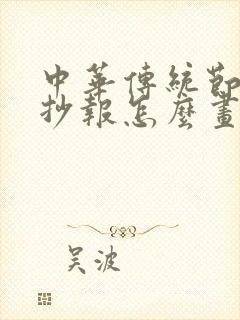 中華傳統節
抄報怎麼畫
吴波